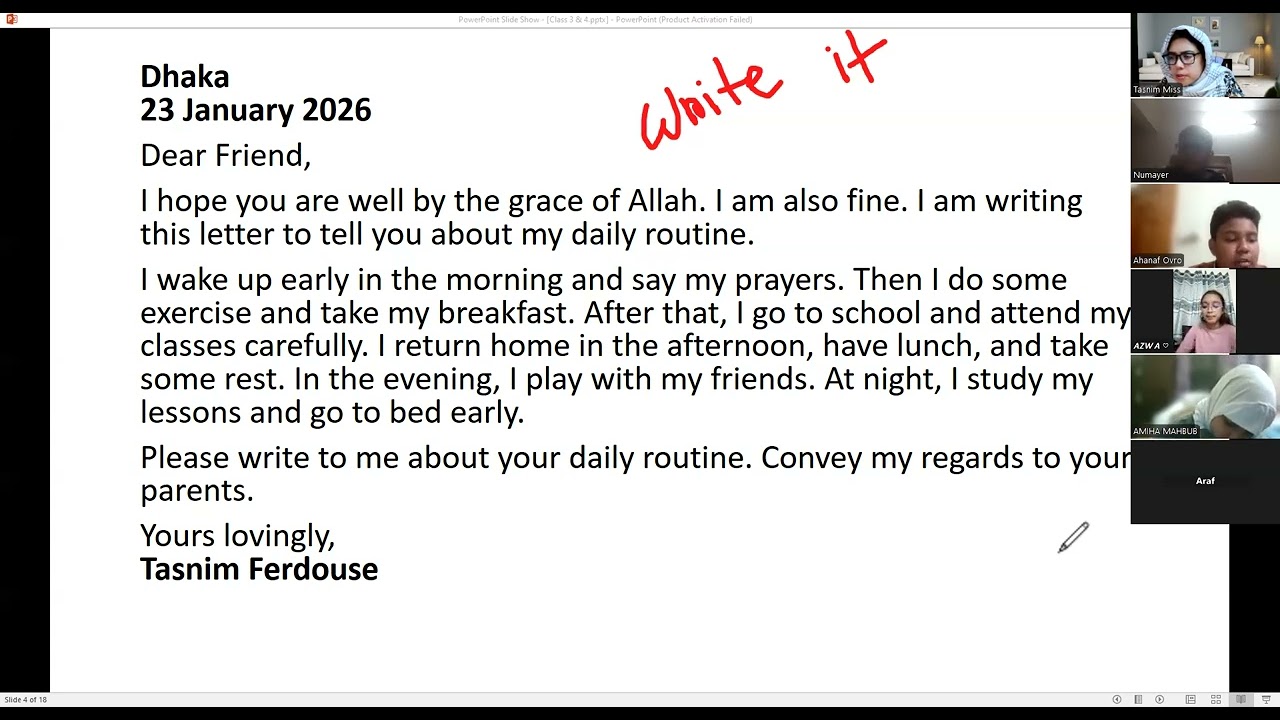 PowerPoint Slide Show - [Class 3 & 4.pptx] - PowerPoint (Product Activation Failed)
Write it
Dhaka
23 January 2026
Dear Friend,
I hope you are well by the grace of Allah. I am also fine. I am writing
this letter to tell you about my daily routine.
I wake up early in the morning and say my prayers. Then I do some
exercise and take my breakfast. After that, I go to school and attend my
classes carefully. I return home in the afternoon, have lunch, and take
some rest. In the evening, I play with my friends. At night, I study my
lessons and go to bed early.
Please write to me about your daily routine. Convey my regards to your
parents.
Yours lovingly,
Tasnim Ferdouse
Tasnim Miss
Numayer
Ahanaf Ovro
AZWA ♡
AMIHA MAHBUB
Araf
Slide 4 of 18